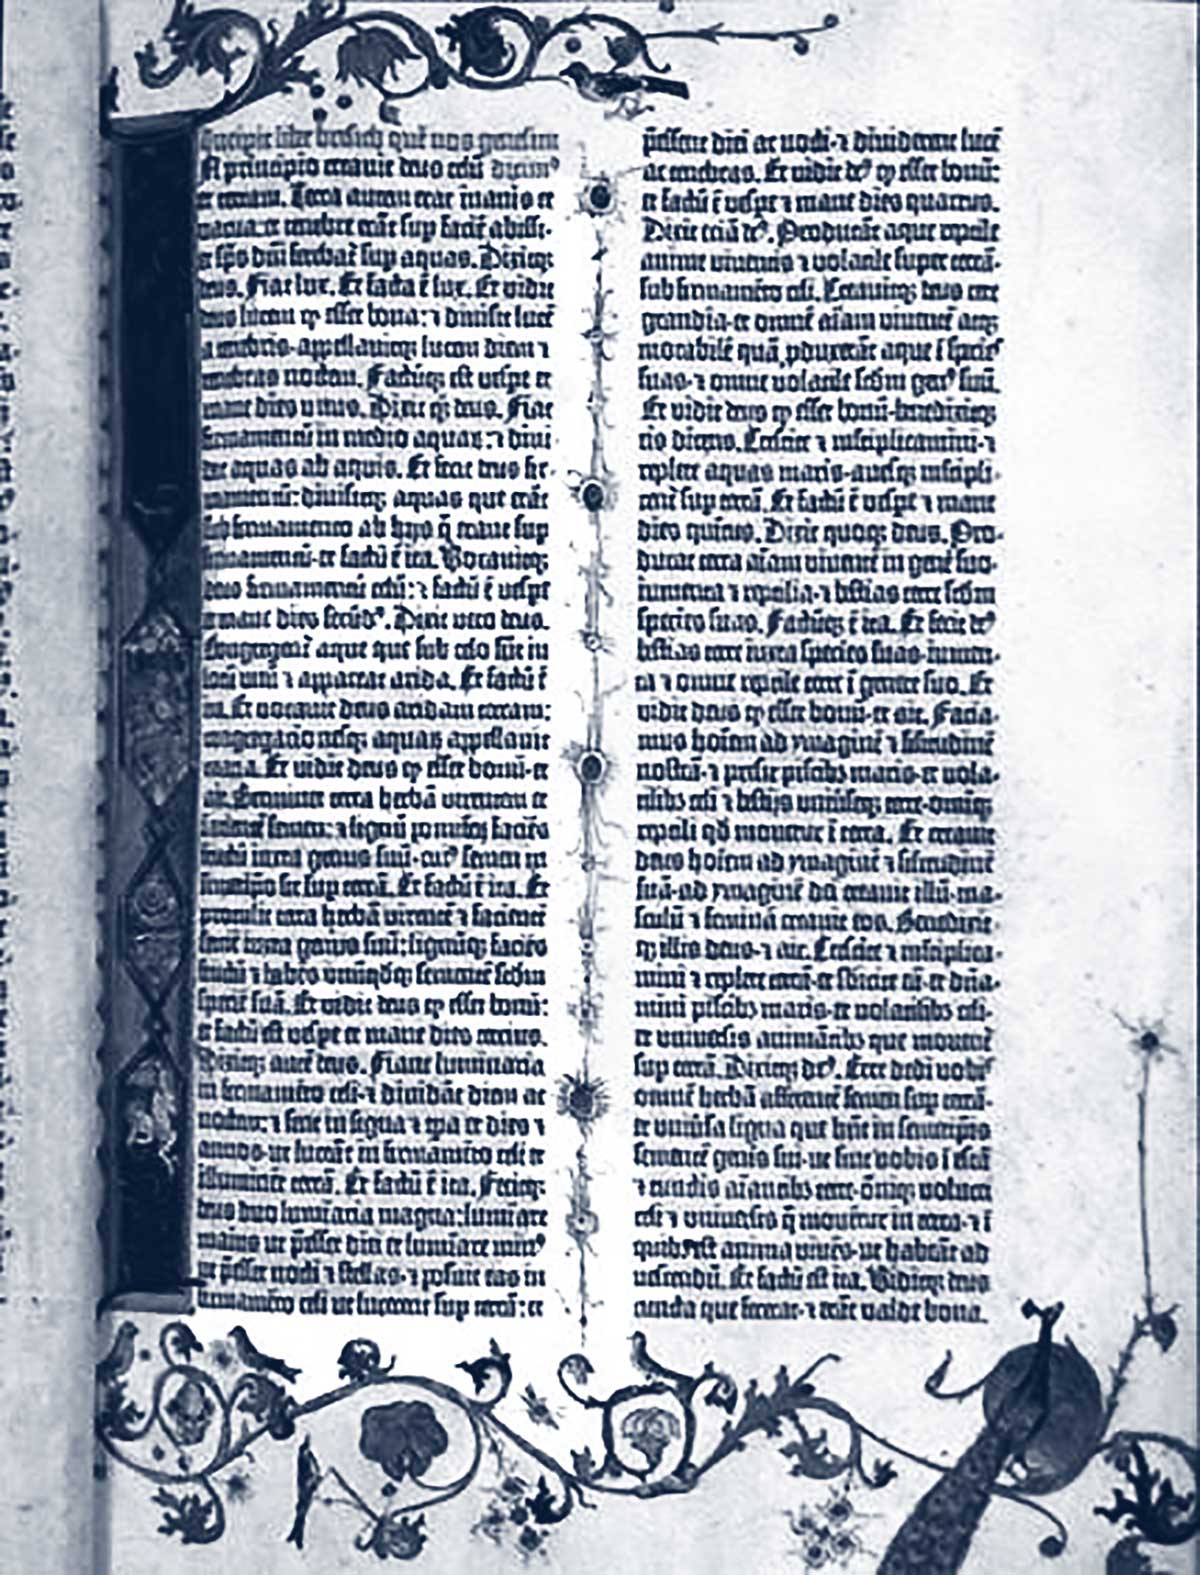 Incipit liber bresith quē nos genesim
N principio creauit deus celū dicimꝰ
et terram. Terra autem erat inanis et
vacua: et tenebre erāt sup faciē abissi·
et sp̄s dn̄i ferebat᷑ sup aquas. Dixitqꝫ
deus. Fiat lux. Et facta ē lux. Et vidit
deus lucem ꝙ esset bona: ⁊ diuisit lucē
a tenebris·appellauitqꝫ lucem diem ⁊
tenebras noctem. Factūqꝫ est vespe et
mane dies vnus. Dixit qꝫ deus. Fiat
firmamentū in medio aquaꝝ: ⁊ diui-
dat aquas ab aquis. Et fecit deus fir-
mamentū: diuisitqꝫ aquas que erāt
sub firmamento ab hijs q̄ erant sup
firmamentū·et factū ē ita. Vocauitqꝫ
deus firmamentū celū: ⁊ factū ē vespe
et mane dies secūdꝰ. Dixit vero deus.
Congregent᷑ aque que sub celo sūt in
locū vnū ⁊ appareat arida. Et factū ē
ita. Et vocauit deus aridam terram:
congregacionesqꝫ aquaꝝ appellauit
maria. Et vidit deus ꝙ esset bonū·et
ait. Germinet terra herbā virentem et
facientē semen: ⁊ lignū pomiferū faciēs
fructū iuxta genus suū·cuiꝰ semen in
semetipo sit sup terrā. Et factū ē ita. Et
protulit terra herbā virentē ⁊ facientē
semē iuxta genus suū: lignūqꝫ faciēs
fructū ⁊ habēs vnūqdqꝫ sementē scdm
speciē suā. Et vidit deus ꝙ esset bonū:
et factū est vespe et mane dies tercius.
Dixitqꝫ autē deus. Fiant luminaria
in firmamēto celi·⁊ diuidāt diem ac
noctem: ⁊ sint in signa ⁊ tpa et dies ⁊
annos·ut luceāt in firmamēto celi et
illuminēt terrā. Et factū ē ita. Fecitqꝫ
deus duo luminaria magna: luminare
maius ut p̄esset diei et luminare minꝰ
ut p̄esset nocti ⁊ stellas·⁊ posuit eas in
firmamēto celi ut lucerent sup terrā: et
p̄essent diei ac nocti·⁊ diuiderent lucē
ac tenebras. Et vidit deꝰ ꝙ esset bonū:
et factū ē vespe ⁊ mane dies quartus.
Dixit eciā deꝰ. Producāt aque reptile
anime viuentis ⁊ volatile super terrā·
sub firmamēto celi. Creauitqꝫ deus cete
grandia·et omnē aīam viuentē atqꝫ
motabilē quā ꝓduxerāt aque ī species
suas·⁊ omne volatile scdm genꝰ suū.
Et vidit deus ꝙ esset bonū·benedixitqꝫ
eis dicens. Crescite ⁊ multiplicamini·⁊
replete aquas maris·auesqꝫ multipli-
cent᷑ sup terrā. Et factū ē vespe ⁊ mane
dies quintus. Dixit quoqꝫ deus. Pro-
ducat terra aīam viuentē in genē suo·
iumenta ⁊ reptilia·⁊ bestias terre scdm
species suas. Factūqꝫ ē ita. Et fecit deꝰ
bestias terre iuxta species suas·iumen-
ta ⁊ omne reptile terre ī genere suo. Et
vidit deus ꝙ esset bonū·et ait. Facia-
mus hoīem ad ymaginē ⁊ silitudinē
nostrā·⁊ presit piscibꝫ maris·et vola-
tilibꝫ celi ⁊ bestijs vniūseqꝫ terre·omniqꝫ
reptili qd mouetur ī terra. Et creauit
deus hoīem ad ymaginē ⁊ silitudinē
suā·ad ymaginē dei creauit illū·ma-
sculū ⁊ feminā creauit eos. Benedixit-
qꝫ illis deus·⁊ ait. Crescite ⁊ multiplica-
mini ⁊ replete terrā·et subicite eā·et dn̄a-
mini piscibꝫ maris·et volatilibꝫ celi·
et vniuersis animātibꝫ que mouent᷑
sup terrā. Dixitqꝫ deꝰ. Ecce dedi vobis
omnē herbā afferentē semen sup terrā·
et vniūsa ligna que hn̄t in semetipis
sementē genis sui·ut sint vobis ī escā
⁊ cunctis aīantibꝫ terre·oīniqꝫ volucri
celi ⁊ vniuersis q̄ mouētur in terra·⁊ ī
quibꝫ est anima viuēs·ut habeāt ad
vescendū. Et factū est ita. Viditqꝫ deus
cuncta que fecerat·⁊ erāt valde bona.